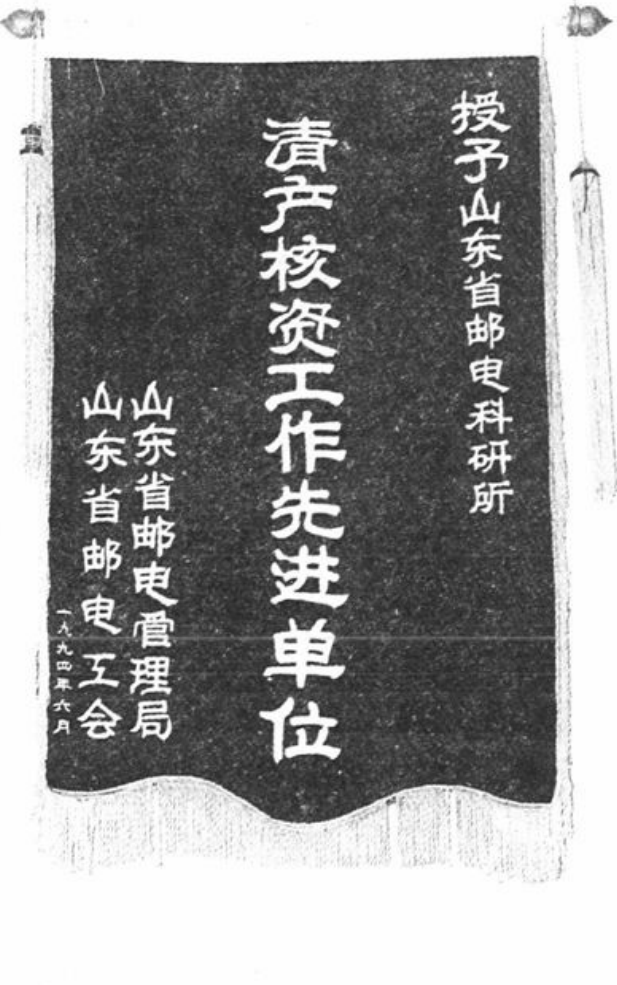 授予山东省邮电科研所
清产核资工作先进单位
山东省邮电管理局
山东省邮电工会
一九九四年六月